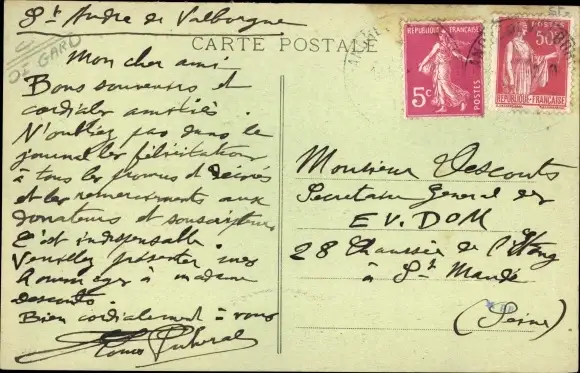 St André de Valborgne
DE GARD
CARTE POSTALE
Mon cher ami
Bons souvenirs et
cordiales amitiés.
N'oubliez pas dans le
journal les félicitations
à tous les promus et Décorés
et les remerciements aux
donateurs et souscripteurs
C'est indispensable.
Veuillez présenter mes
hommages à madame
Descouts.
Bien cordialement à vous
RÉPUBLIQUE FRANÇAISE
5c
POSTES
POSTES
50c
RÉPUBLIQUE FRANÇAISE
Monsieur Descouts
Secrétaire Général des
EV. DOM
28 Chaussée de l'Etang
à St Mandé
(Seine)